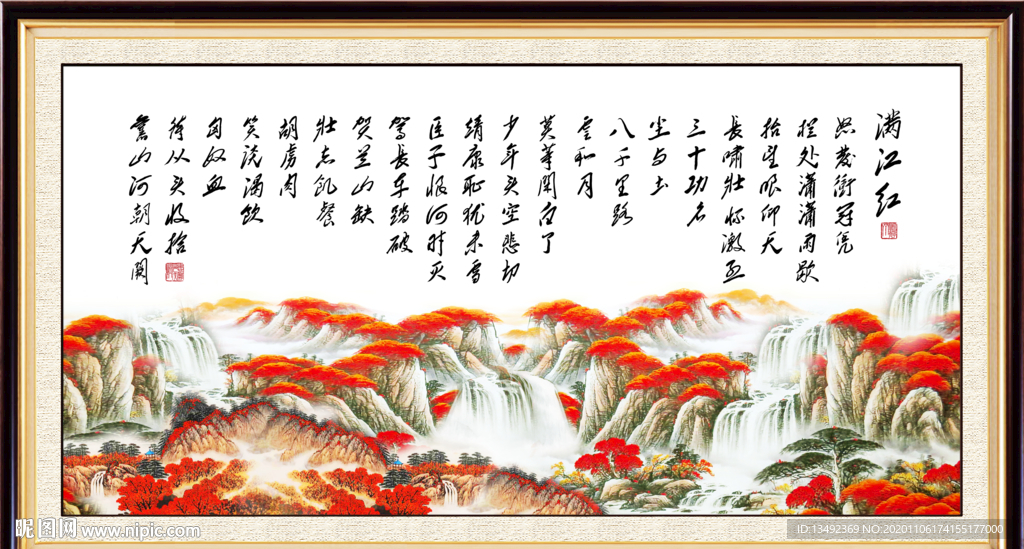 满江红
怒髮衝冠凭
栏处潇潇雨歇
抬望眼仰天
長嘯壮怀激烈
三十功名
尘与土
八千里路
雲和月
莫等閑白了
少年头空悲切
靖康恥犹未雪
臣子恨何时灭
駕長车踏破
贺兰山缺
壮志飢餐
胡虏肉
笑谈渴饮
匈奴血
待从头收拾
舊山河朝天闕
昵图网 www.nipic.com
ID:13492369 NO:20201106174155177000